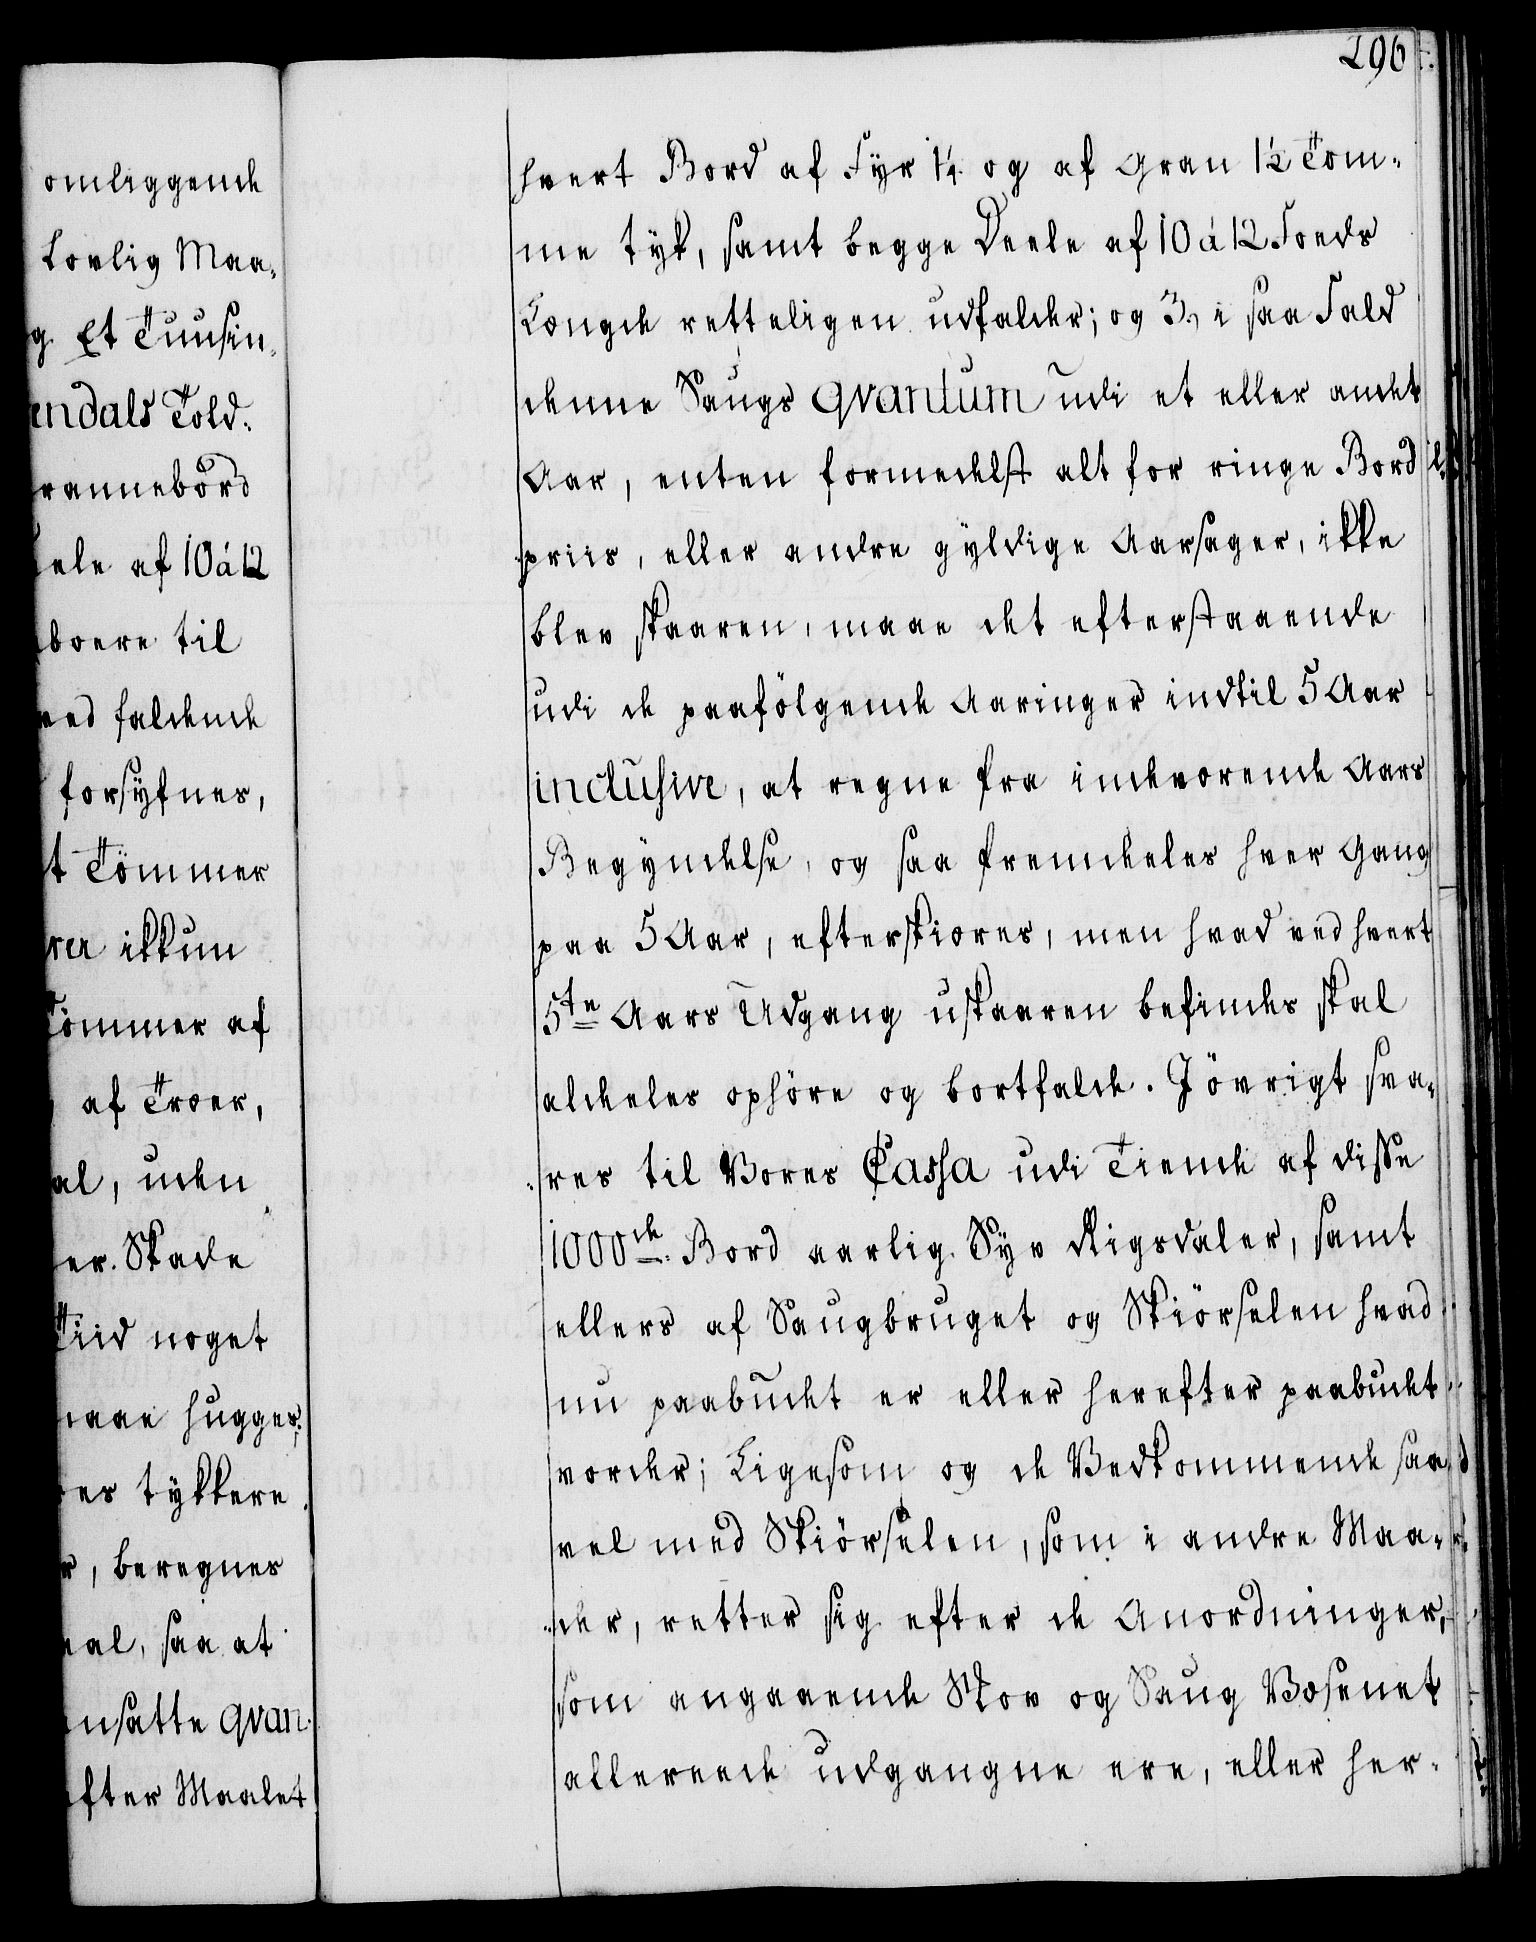 omliggende
Lovlig Maa-
g Et Tuusin-
endals Told-
rannebord
eele af 10 á 12
boere til
ned faldende
forsyfnes,
t Tömmer
rer ikkun
Tömmer af
af Træer,
al, uden
er. Skade
Tiid noget
maae hugges;
es tykkere
r, beregnes
aal, saa at
nsatte qvan-
fter Maalet
296
hvert Bord af Fyr 1¼ og af Gran 1½ Tom-
me tyk, samt begge Deele af 10 á 12 Foeds
Længde retteligen udfalder; og 3, i saa Fald
denne Saugs qvantum udi et eller andet
Aar, enten formedelst alt for ringe Bord
priis, eller andre gyldige Aarsager, ikke
blev skaaren, maae det efterstaaende
udi de paafölgende Aaringer indtil 5 Aar
inclusive, at regne fra indeværende Aars
Begyndelse, og saa fremdeeles hver Gang
paa 5 Aar, efterskiæres, men hvad ved hvert
5te Aars Udgang uskaaren befindes skal
aldeeles ophöre og bortfalde. J övrigt sva-
res til Vores Cassa udi Tiende af disse
1000de Bord aarlig Syv Rigsdaler, samt
ellers af Saugbruget og Skiörselen hvad
nu paabudet er eller herefter paabudet
vorder; Ligesom og de Vedkommende saa
vel med Skiörselen, som i andre Maa-
der, retter sig efter de Anordninger,
som angaaende Skov og Saug Væsenet
allereede udgangne ere, eller her-